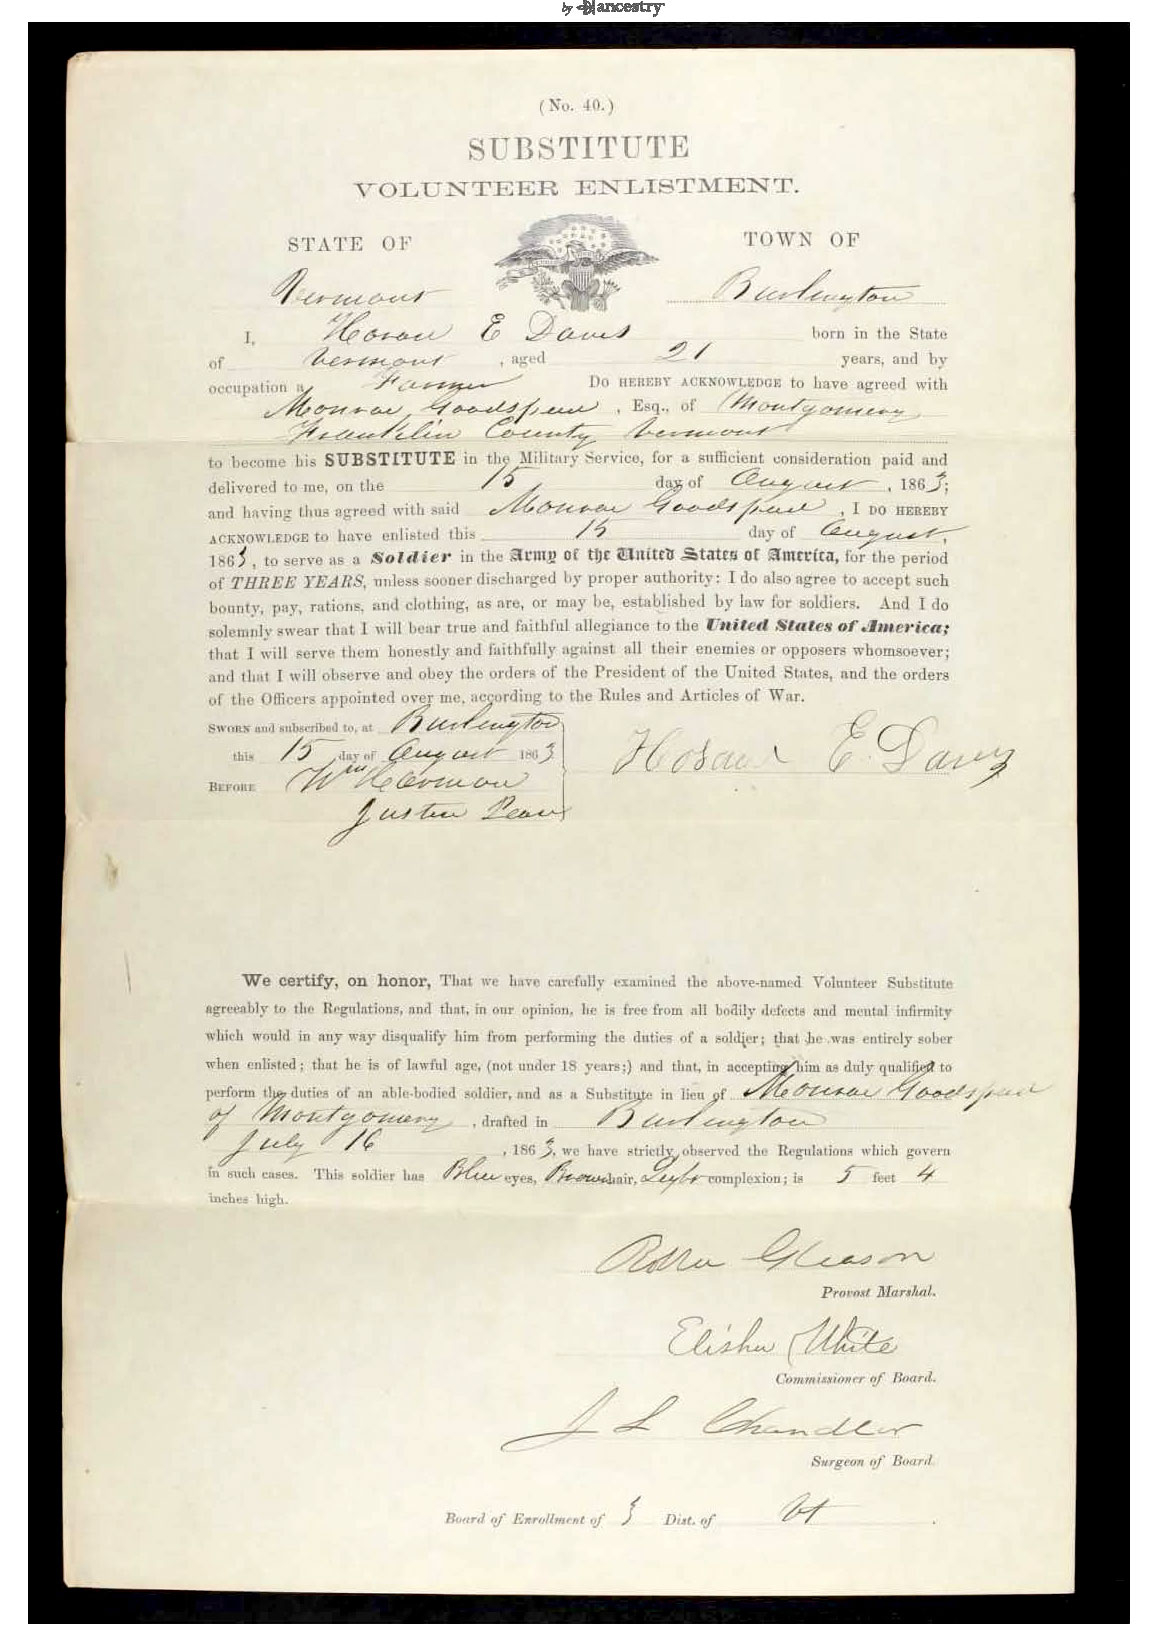 by ancestry
(No. 40.)
SUBSTITUTE
VOLUNTEER ENLISTMENT.
STATE OF TOWN OF
Vermont Burlington
I, E Davis born in the State
of Vermont, aged 21 years, and by
occupation a Farmer DO HEREBY ACKNOWLEDGE to have agreed with
Monroe Goodspeed, Esq., of Montgomery
Franklin County Vermont
to become his SUBSTITUTE in the Military Service, for a sufficient consideration paid and
delivered to me, on the 15 day of August, 1863;
and having thus agreed with said Monroe Goodspeed, I DO HEREBY
ACKNOWLEDGE to have enlisted this 15 day of August,
1863, to serve as a Soldier in the Army of the United States of America, for the period
of THREE YEARS, unless sooner discharged by proper authority: I do also agree to accept such
bounty, pay, rations, and clothing, as are, or may be, established by law for soldiers. And I do
solemnly swear that I will bear true and faithful allegiance to the United States of America;
that I will serve them honestly and faithfully against all their enemies or opposers whomsoever;
and that I will observe and obey the orders of the President of the United States, and the orders
of the Officers appointed over me, according to the Rules and Articles of War.
SWORN and subscribed to, at Burlington
this 15 day of August 1863 E. Davis
BEFORE Wm
Justice Peace
We certify, on honor, That we have carefully examined the above-named Volunteer Substitute
agreeably to the Regulations, and that, in our opinion, he is free from all bodily defects and mental infirmity
which would in any way disqualify him from performing the duties of a soldier; that he was entirely sober
when enlisted; that he is of lawful age, (not under 18 years;) and that, in accepting him as duly qualified to
perform the duties of an able-bodied soldier, and as a Substitute in lieu of Monroe Goodspeed
of Montgomery, drafted in Burlington
July 16, 1863, we have strictly observed the Regulations which govern
in such cases. This soldier has Blue eyes, Brown hair, Light complexion; is 5 feet 4
inches high.
Rolla Gleason
Provost Marshal.
Elisha White
Commissioner of Board.
J L Chandler
Surgeon of Board.
Board of Enrollment of 3 Dist. of Vt.